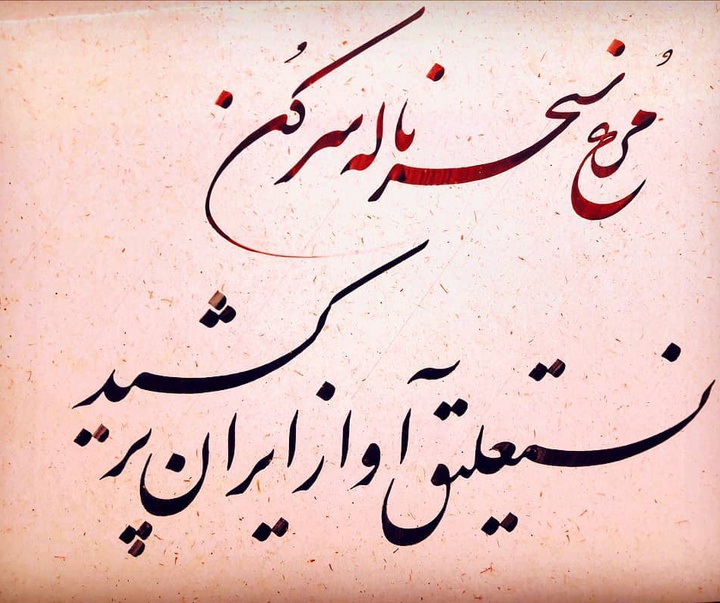 مُرغ سحر ناله سر کُن
نستیعلیق آواز ایران پر کشید